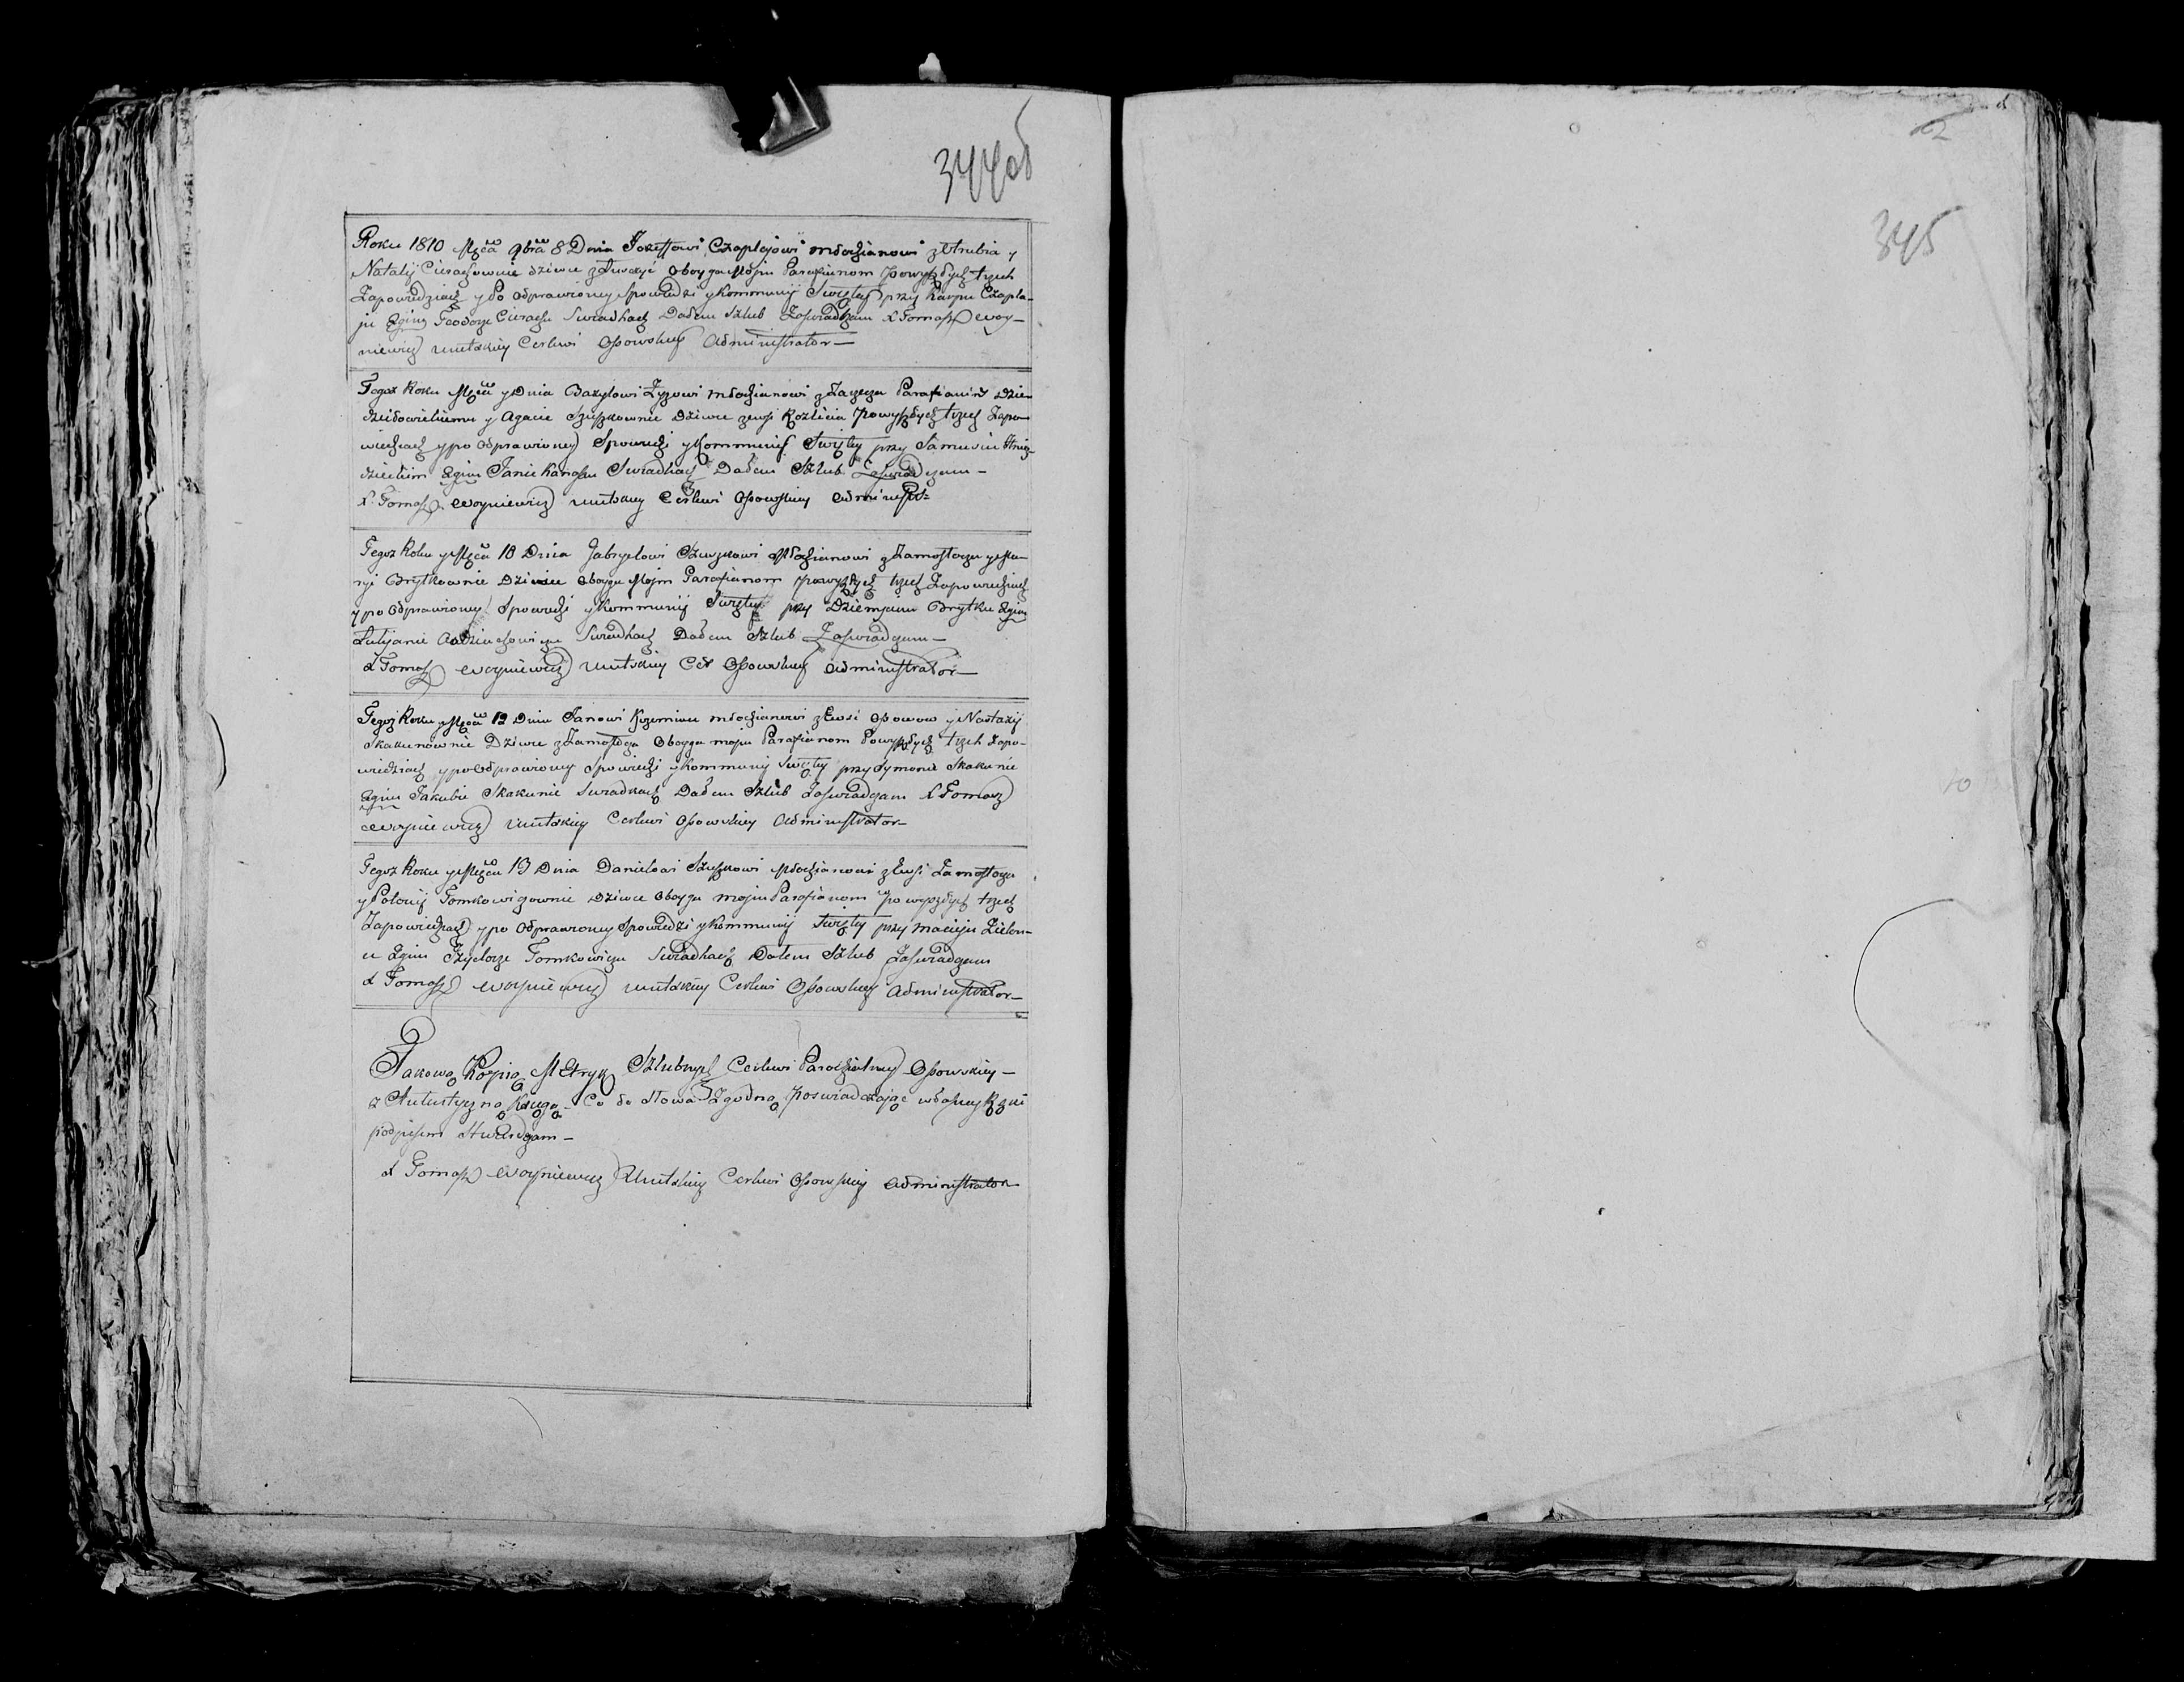 344об
Roku 1810 Mca 9bra 8 Dnia Jozeffowi Czaplejowi młodzianowi z y
Natalij Cierachownie dziwce oboyga Mojm Parafianom powyszłych trzech
Zapowiedziach y Po odprawioney Spowiedzi y Kommunij Swiętey przy Karpu Czapla-
ju Egim Teodorze Cierachu Swiadkach Dałem Szlub Zaswiadczam X Tomasz Woy-
niewicz Unitskiey Cerkwi Osowskiey Administrator —
Tegoz Roku Mca y Dnia Bazylowi Zyzowi młodzianowi z Zarzecza Parafianinu Dzie-
y Agacie Szuszkownie Dziwce z wsi powyszłych trzech Zapo-
wiedziach y po odprawioney Spowiedzi y Kommunij Swiętey przy Samusiu
Egim Janie Swiadkach Dałem Szlub Zaswiadczam —
X. Tomasz Woyniewicz Unitskiey Cerkwi Osowskiey Administr=
Tegoz Roku y Mca 10 Dnia Gabryelowi Szuszkowi Młodzianowi z Zamostocza y Ma-
ryi Brytkownie Dziwce oboyga Mojm Parafianom powyszłych trzech Zapowiedziach
y po odprawioney Spowiedzi y Kommunij Swiętey przy Dziemjanu Brytku Egim
Łukjanie Swiadkach Dałem Szlub Zaswiadczam —
X Tomasz Woyniewicz Unitskiey Cer Osowskiey Administrator —
Tegoz Roku y Mca 12 Dnia Janowi młodzianowi z Ewsi Osowow y Nastazij
Skakunownie Dziwce z Zamostocza oboyga mojm Parafianom Powyszłych trzech Zapo-
wiedziach y po odprawioney Spowiedzi y Kommunij Swiętey przy Symonie Skakunie
Egim Jakubie Skakunie Swiadkach Dałem Szlub Zaswiadczam X Tomasz
Woyniewicz Unitskiey Cerkwi Osowskiey Administrator —
Tegoz Roku y Mca 13 Dnia Danielowi Szuszkowi Młodzianowi z Ewsi Zamostocza
y Polonij Tomkowizownie Dziwce oboyga mojm Parafianom powyszłych trzech
Zapowiedziach y po odprawioney Spowiedzi y Kommunij Swiętey przy Macieju Zielon-
Egim Tomkowiczu Swiadkach Dałem Szlub Zaswiadczam
X Tomasz Woyniewicz Unitskiey Cerkwi Osowskiey Administrator —
Takową Kopią Metryk Szlubnych Cerkwi Parochialney Osowskiey —
z Autentyczną Księgą Co do słowa Zgodną poswiadczając własney Ręki
podpisem stwierdzam —
X Tomasz Woyniewicz Unitskiey Cerkwi Osowskiey Administrator
2
345